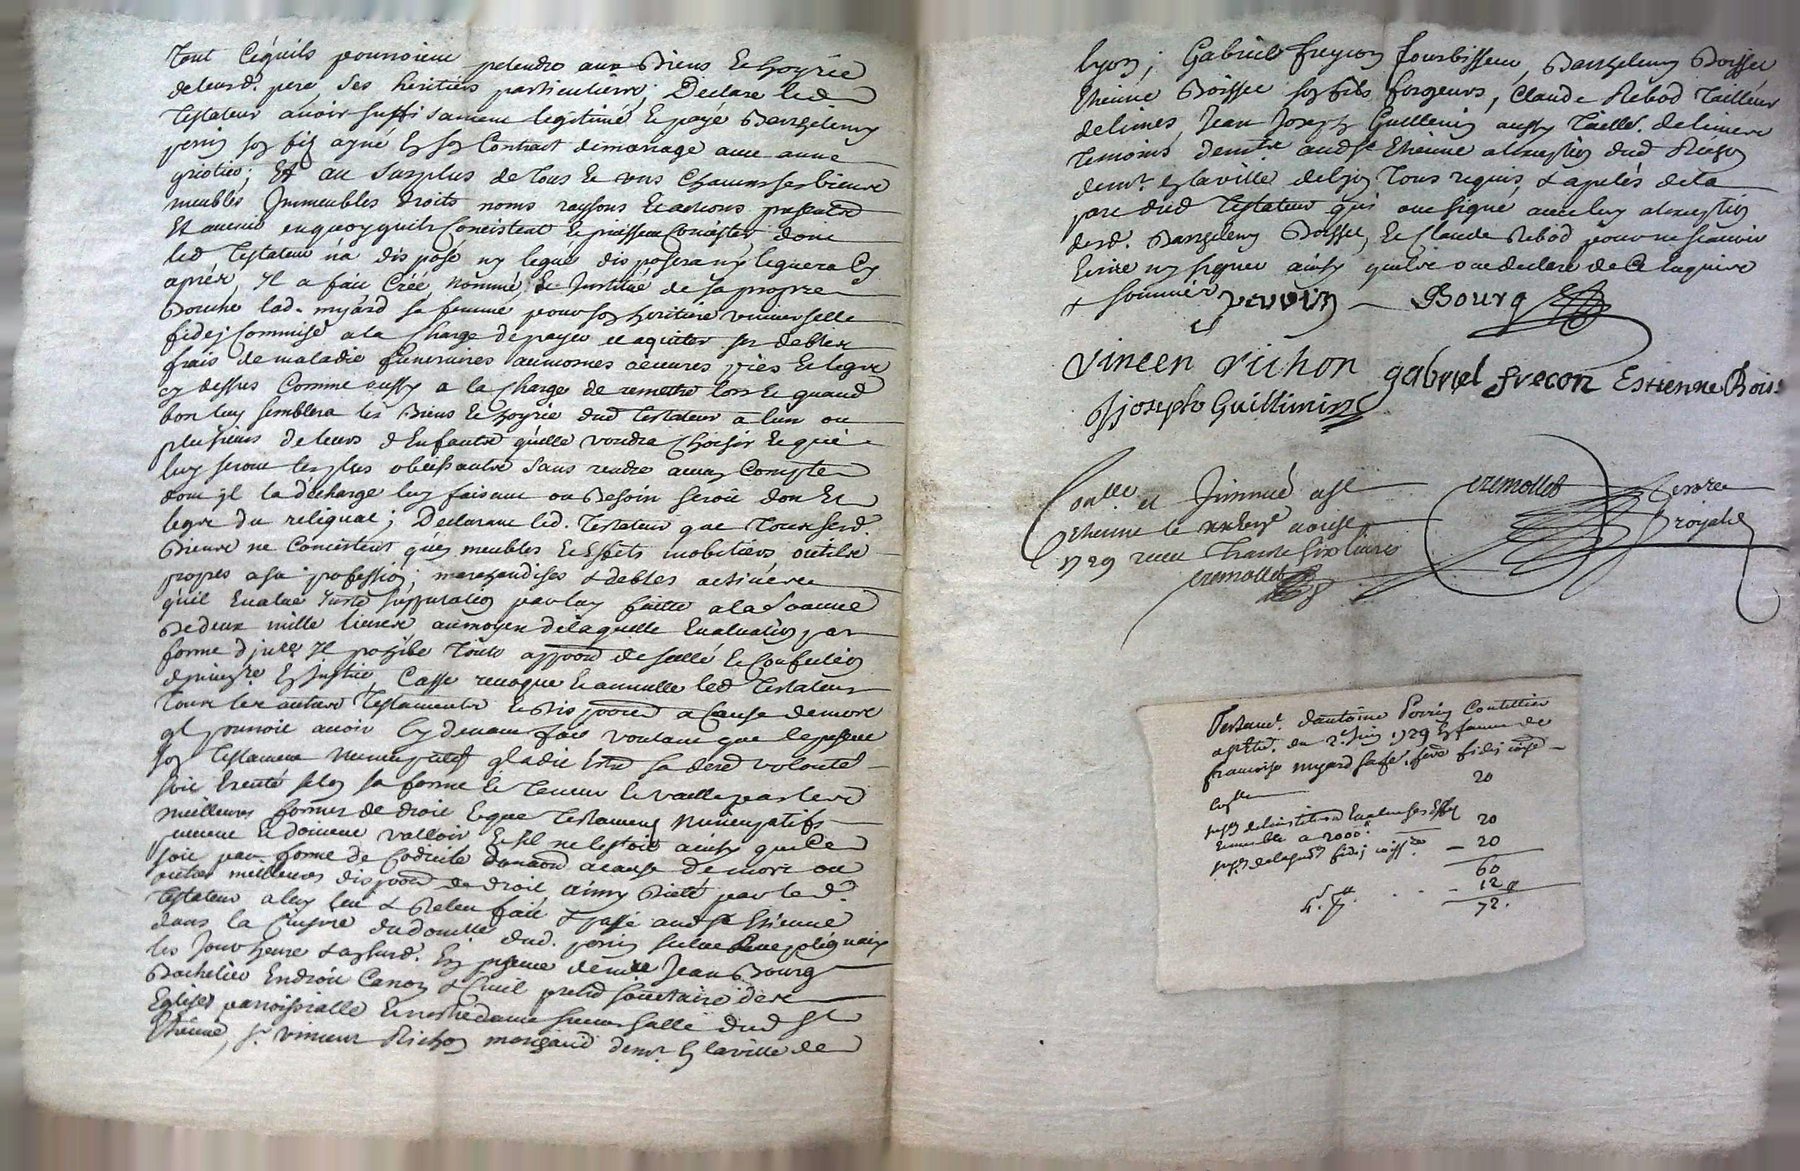 Tout cequils pourroient pretendre aux Biens & hoyrie
deleurd. pere ses heritiers particuliers; Declare led
Testateur avoir suffisament legitimé & payé Barthelemy
perrin son fils ayné en son Contract demariage avec anne
griotier; Et au surplus de tous & uns chacuns ses biens
meubles Immeubles droits noms raysons & actions presents
Et avenir enquoyquils Concistent & puissent Concister dont
led Testateur n'a disposé ny legué disposera ny leguera Cy
apres, Il a fait Créé nommé & Institué de sa propre
Bouche lad. myard sa femme pour son heritiere universelle
fidej Commise a la Charge de payer et aquiter ses debtes
frais de maladie funeraires aumornes oeuvres pies & legat
cy dessus Comme aussy a la Charge de remettre lors & quand
bon luy semblera les Biens & hoyrie dud Testateur a l'un ou
plusieurs de leurs d Enfants quelle voudra Choisir & qui
luy seront les plus obeissants sans rendre aucun Compte
dont jl la decharge luy faisant ou Besoin seroit don &
legat du reliquat; Declarant led. Testateur que tous sesd.
Biens ne Concistent qu'en meubles & Effets mobiliers outils
propres a sa profession, marchandises & debtes actives
qu'il Evalue juste supputation par luy faitte a la somme
De deux mille livres aumoyen delaquelle Evaluation par
forme d'jnvre Il prohibe toute apposon de scellé & Confection
dinvre En Justice, Casse revoque & annulle led Testateur
Tous les autres Testaments & Dispoons a Cause de mort
ql pourroit avoir Cy devant fait voulant que le present
son Testament Nuncupatif ql a dit Estre sa dere volonté
soit Executé selon sa forme & Teneur & vaille par les
meilleures formes de droit & que Testament Nuncupatifs
peuvent & doivent valloir & sil ne lestoit ainsy que Ce
soit par forme de Codicile donaon acause de mort ou
autres meilleures dispoons de droit, ainsy Dicté par led.
Testateur a luy leu & Releu fait & passé aud St Etienne
dans la Cuisine du domille dud. perrin
les Jour heure & an susd. En presence de mre Jean Bourg
Bachelier En droit Canon & Civil pretre societaire des
Eglises parroissialle & nostre dame succursalle dud St
Etienne, sr. vincent Richon marchand demt. En la ville de
Lyon; Gabriel freycon fourbisseur, Barthelemy Boisset
Etienne Boisset son fils forgeurs, Claude Rebod Tailleur
de limes, Jean Joseph Guillemin aussy Tailler. de limes
Temoins demts aud St Etienne alexception dud Richon
demt. En la ville de Lyon Tous requis & apelés de la
part dud Testateur qui ont signé avec luy alexception
desd. Barthelemy Boisset, & Claude Rebod pour ne scavoir
Ecrire ny signer ainsy quils ont declaré de Ce Enquis
& sommés
Bourg
vincen richon gabriel frecon Estienne Bois
J joseph Guillimin
Conlle et Jnsinué a St cremollet
Etienne le aoust
1729 receu Trante six livres royal
cremollet
Testamt. d'antoine Perrin Coutellier
a St Etne. du 2e. Juin 1729 En faveur de
francoise myard sa fe. fere fidej
20
Cy
20
a 2000
20
60
12
72.